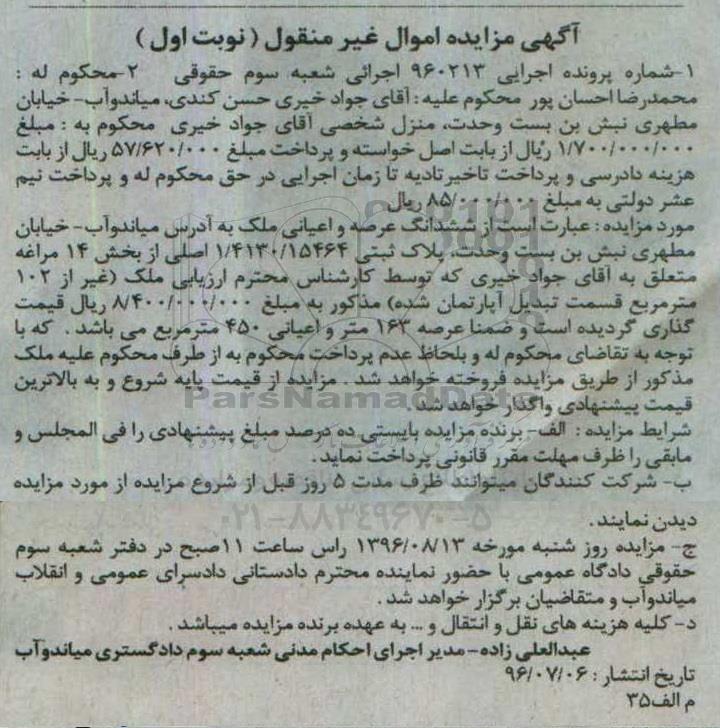 آگهی مزایده اموال غیر منقول ( نوبت اول )
۱-شماره پرونده اجرایی ۹۶۰۲۱۳ اجرائی شعبه سوم حقوقی ۲-محکوم له :
محمدرضا احسان پور محکوم علیه : آقای جواد خیری حسن کندی، میاندوآب- خیابان
مطهری نبش بن بست وحدت، منزل شخصی آقای جواد خیری محکوم به : مبلغ
۱/۷۰۰/۰۰۰/۰۰۰ ریال از بابت اصل خواسته و پرداخت مبلغ ۵۷/۶۲۰/۰۰۰ ریال از بابت
هزینه دادرسی و پرداخت تاخیرتادیه تا زمان اجرایی در حق محکوم له و پرداخت نیم
عشر دولتی به مبلغ ۸۵/۰۰۰/۰۰۰ ریال
مورد مزایده : عبارت است از ششدانگ عرصه و اعیانی ملک به آدرس میاندوآب- خیابان
مطهری نبش بن بست وحدت، پلاک ثبتی ۱/۴۱۳۰/۱۵۴۶۴ اصلی از بخش ۱۴ مراغه
متعلق به آقای جواد خیری که توسط کارشناس محترم ارزیابی ملک (غیر از ۱۰۲
مترمربع قسمت تبدیل آپارتمان شده) مذکور به مبلغ ۸/۴۰۰/۰۰۰/۰۰۰ ریال قیمت
گذاری گردیده است و ضمنا عرصه ۱۶۳ متر و اعیانی ۴۵۰ مترمربع می باشد . که با
توجه به تقاضای محکوم له و بلحاظ عدم پرداخت محکوم به از طرف محکوم علیه ملک
مذکور از طریق مزایده فروخته خواهد شد . مزایده از قیمت پایه شروع و به بالاترین
قیمت پیشنهادی واگذار خواهد شد .
ParsNamadData
شرایط مزایده : الف- برنده مزایده بایستی ده درصد مبلغ پیشنهادی را فی المجلس و
مابقی را ظرف مهلت مقرر قانونی پرداخت نماید .
ب- شرکت کنندگان میتوانند ظرف مدت ۵ روز قبل از شروع مزایده از مورد مزایده
۰۲۱-۸۸۳۴۹۶۷۰-۵
دیدن نمایند .
ج- مزایده روز شنبه مورخه ۱۳۹۶/۰۸/۱۳ راس ساعت ۱۱صبح در دفتر شعبه سوم
حقوقی دادگاه عمومی با حضور نماینده محترم دادستانی دادسرای عمومی و انقلاب
میاندوآب و متقاضیان برگزار خواهد شد .
د- کلیه هزینه های نقل و انتقال و ... به عهده برنده مزایده میباشد .
عبدالعلی زاده- مدیر اجرای احکام مدنی شعبه سوم دادگستری میاندوآب
تاریخ انتشار : ۹۶/۰۷/۰۶
م الف۳۵